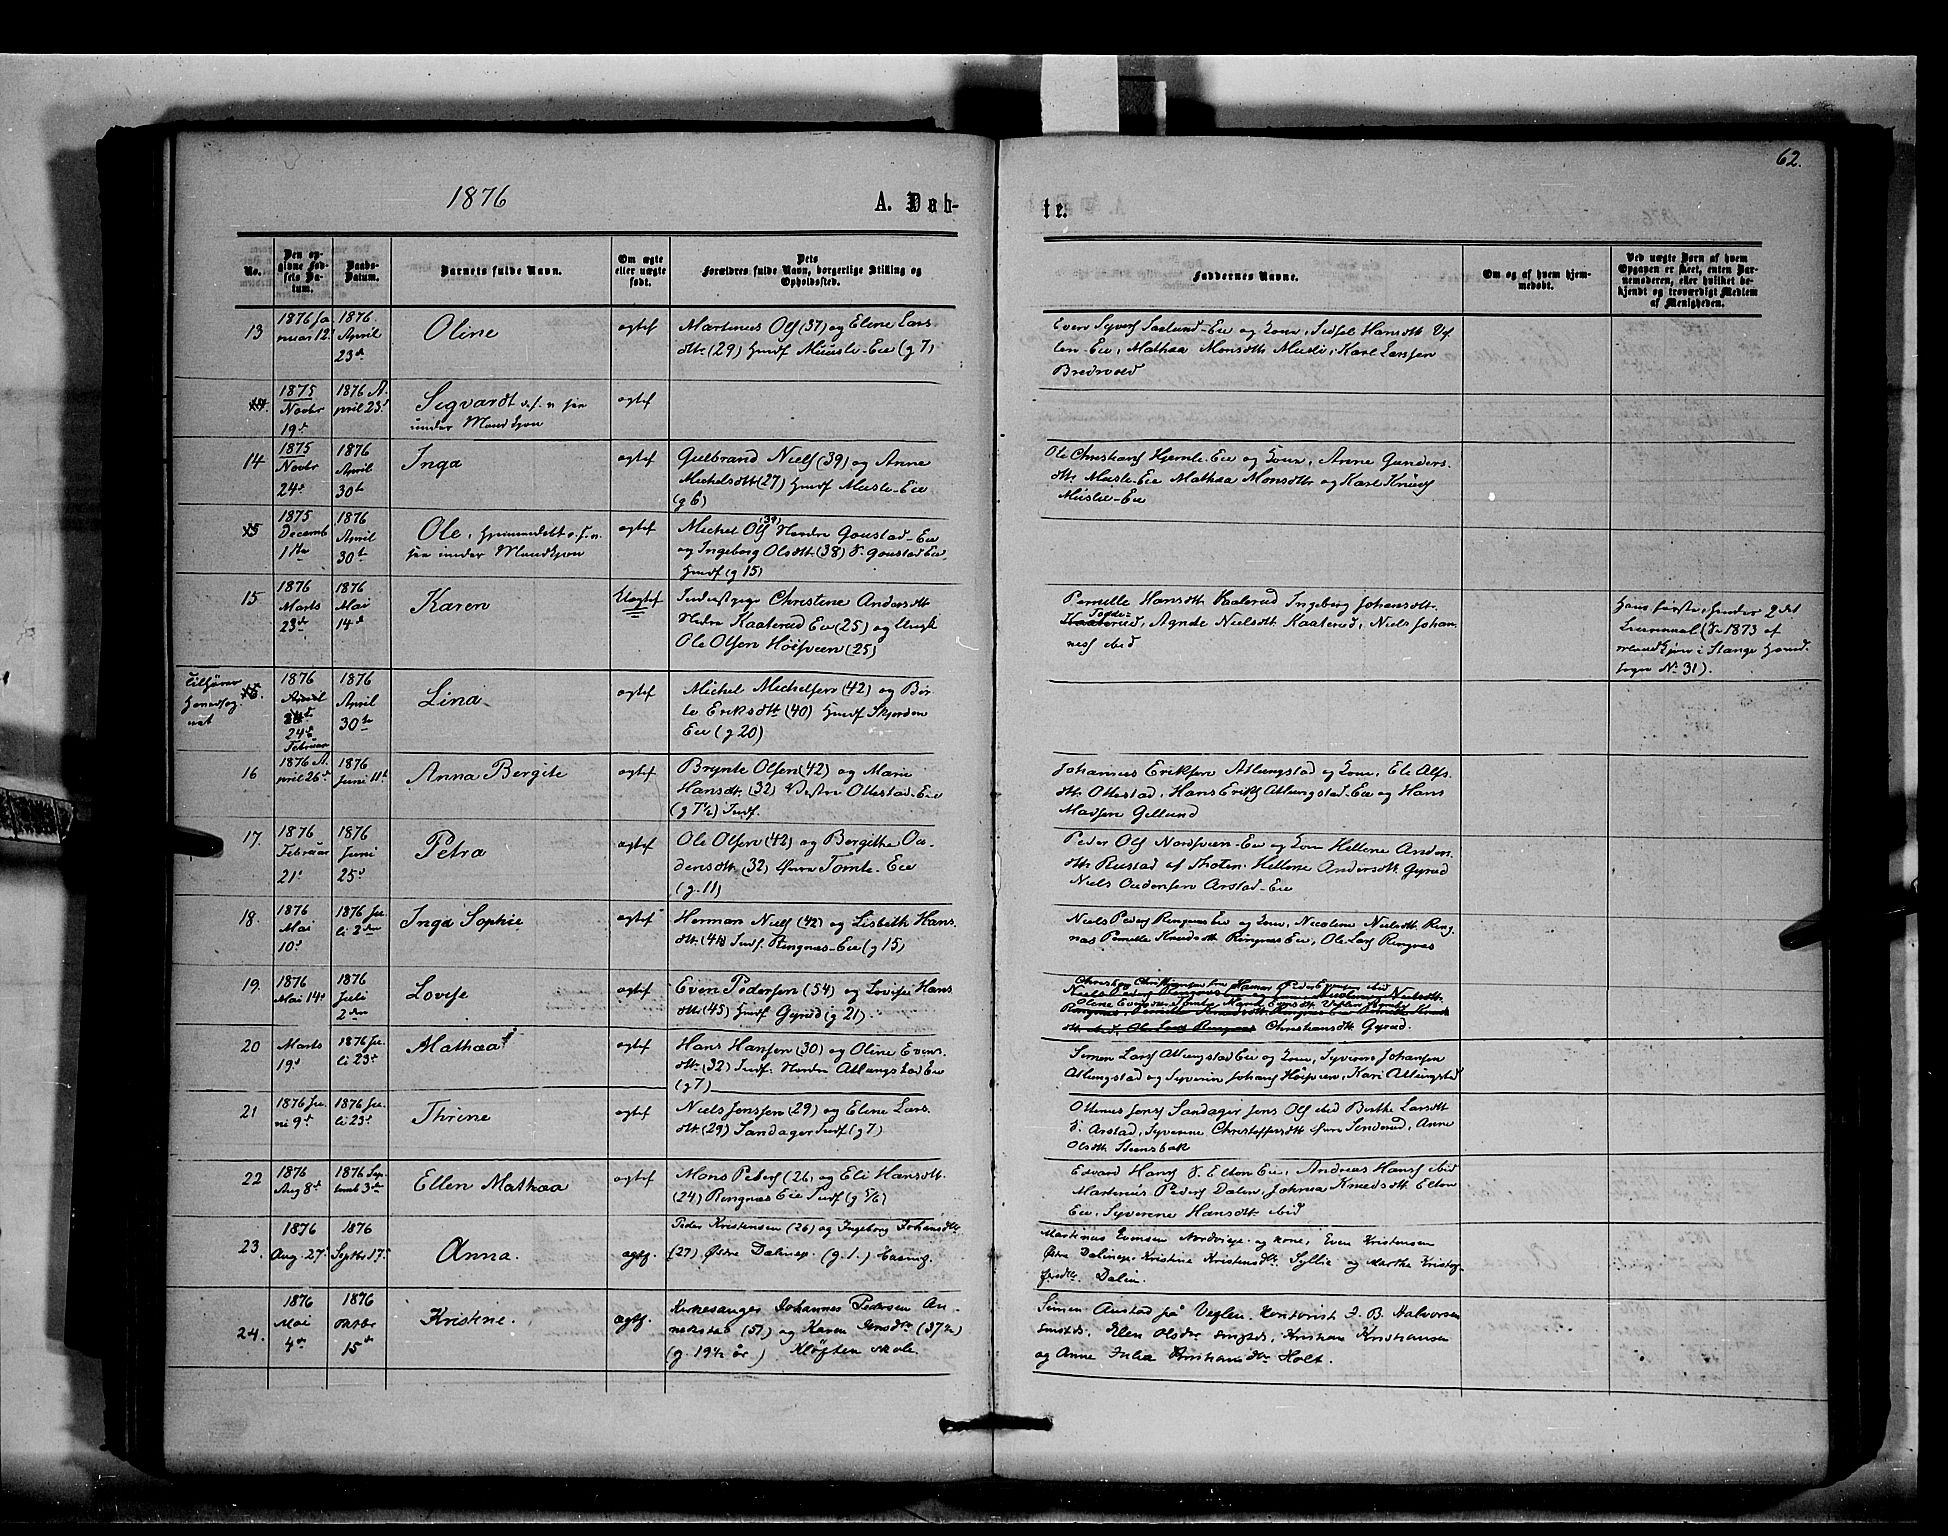 62.
1876
A. Døb-
te.
No.
Den op-
givne Fød-
sels Da-
tum.
Daabs-
Datum.
Barnets fulde Navn.
Om ægte
eller uægte
født.
Dets
Forældres fulde Navn, borgerlige Stilling og
Opholdssted.
Faddernes Navne.
Om og af hvem hjem-
medøbt.
Ved uægte Børn af hvem
Opgaven er skeet, enten Bar-
nemoderen, eller hvilket be-
kjendt og troværdigt Medlem
af Menigheden.
13
1876 Ja
nuar 12
1876
April
23d
Oline
ægtef
Martinus Ols (37) og Eline Lars
dtr (29) Husf Musli-Eie (g 7)
Even Syvers Saslund-Eie og Kone, Sidsel Hansdtr
Eie, Mathea Monsdtr Musli, Karl Larssen
Bredvold
1875
Novbr
19d
1876 A
pril 23d
Sigvardt
under
ægtef
14
1875
Novbr
24d
1876
April
30te
Inga
ægtef
Gulbrand Niels (39) og Anne
Michelsdtr (27) Husf Musli-Eie
(g 6)
Ole Christians Hjemli-Eie og Kone, Anne Gunders
dtr Musli-Eie Mathea Monsdtr og Karl
Musli-Eie
1875
Decemb
1ste
1876
April
30te
Ole, hjemmedøbt
ægtef
Michel Ols (39) Nordre Gaustad-Eie
og Ingeborg Olsdtr (38) S. Gaustad Eie
Husf (g 15)
15
1876
Marts
23de
1876
Mai
14d
Karen
Uægtef
Christine Andersdtr
Nedre Kaaterud Eie (25) og Ungk
Ole Olsen Høisveen (25)
Pernille Hansdtr Kaaterud Ingeborg Johansdtr
Kaaterud, Agnete Nielsdtr Kaaterud, Niels Johan
nes ibid
Hans første, hendes 2det
Leiermaal (Se 1873 af
i Stange Hoved
sogn No 31).
Tilhører
Hovedsog
net
1876
April
24de
Februar
1876
April
30te
Lina
ægtef
Michel Michelsen (42) og Ber
te Eriksdtr (40) Husf Skjerden
Eie (g 20)
16
1876 A
pril 26d
1876
Juni 11te
Anna Bergite
ægtef
Brynte Olsen (42) og Marie
Hansdtr (32) Vestre Ottestad-Eie
(g 7½) Indf.
Johannes Eriksen Atlungstad og Kone, Eli Alfs
dtr Ottestad, Hans Eriks Atlungstad-Eie og Hans
Madsen Gillund
17.
1876
Februar
21d
1876
Juni
25d
Petra
ægtef
Ole Olsen (42) og Bergithe Ou
densdtr (32) Øvre Tomte-Eie
(g. 11)
Peder Ols Nordsveen-Eie og Kone Hellene Anders
dtr Rustad af Thoten, Hellene Andersdtr Gyrud
Niels Oudensen Arstad-Eie
18.
1876
Mai
10d
1876 Ju
li 2den
Inga Sophie
ægtef
Herman Niels (42) og Lisbeth Hans
dtr (41) Indf. Ringnæs-Eie (g 15)
Niels Peders Ringnæs Eie og Kone, Nicoline Nielsdtr Ring
næs Pernille Knudsdtr Ringnæs Eie, Ole Lars Ringnæs
19.
1876
Mai 14d
1876
Juli
2den
Lovise
ægtef
Even Pedersen (54) og Lovise Hans
dtr (45) Husf Gyrud (g 21).
Christiansdtr Gyrud.
20
Marts
19d
1876 Ju
li 23d
Mathea
ægtef
Hans Hansen (30) og Oline Evens
dtr (32) Indf. Nordre Atlungstad Eie
(g 7)
Simen Lars Atlungstad Eie og Kone, Syverin Johansen
Atlungstad og Syverin Johans Høisveen, Kari Atlungstad
21
1876 Ju
ni 9d
1876 Ju
li 23d
Thrine
ægtef
Niels Jensen (29) og Eline Lars
dtr (29) Sandager Indf (g 7)
Ottinus Jens Sandager Jens Ols ibid Birthe Larsdtr
S. Arstad, Syverine Christoffersdtr Øvre Sinderud, Anne
Olsdtr Steensbak
22
1876
Aug 8d
1876 Sep
temb 3de
Ellen Mathea
ægtef
Mons Peders (26) og Eli Hansdtr
(24) Ringnæs Eie Indf (g 5/6)
Edvard Hans S. Elton Eie, Andreas Hans ibid
Martinius Peders Dalen, Johnea Knudsdtr Elton
Eie, Syverine Hansdtr ibid
23.
1876
Aug. 27.
1876
Septbr 17.
Anna.
ægtf.
Peder Kristensen (26) og Ingeborg Johansdtr
(27) Østre Dalineje (g. 1.)
Martinus Evensen Nordvieje og kone, Even Kristensen
Østre Dalineje, Kristine Kristensdtr Syllie og Marthe Kristof
fersdtr Dalin.
24.
1876
Mai
4de
1876
Oktbr
15de
Kristine.
ægtf.
Kirkesanger Johannes Pedersen An-
nekstad (51) og Karen Jensdtr (37½)
(g. 19½ år) Kløften skole.
Simen Anstad på Veglen, Kontorist J. B. Halvorsen
Elen Olsdtr Kristian Kristiansen
og Anne Julia Kristiansdtr Holt.